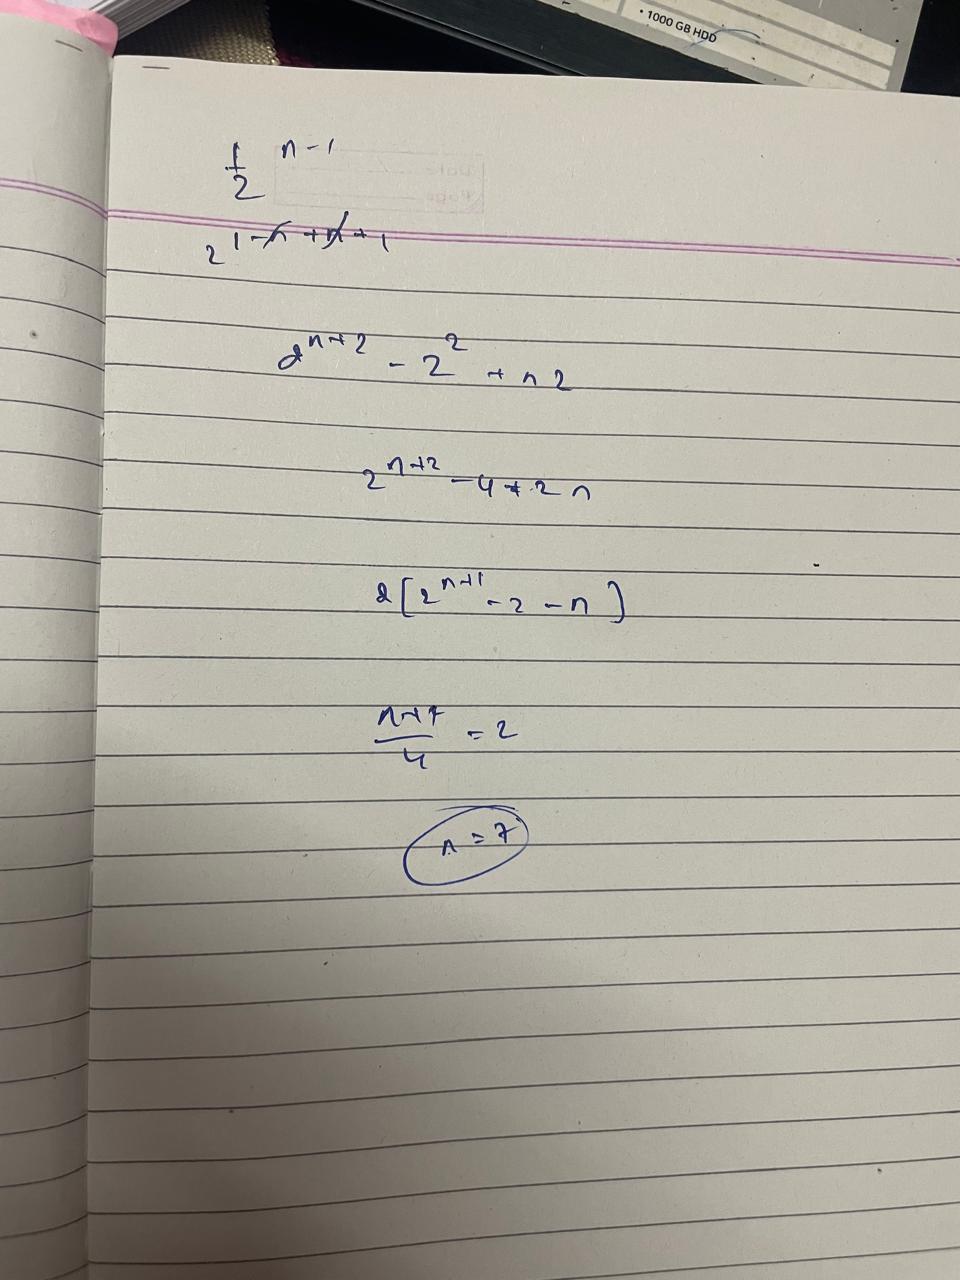 • 1000 GB HDD
1/2 n-1
2^1-n+n+1
2^n+2 - 2^2 + n2
2^n+2 - 4 + 2n
2[2^n+1 - 2 - n]
n+7/4 = 2
n = 7